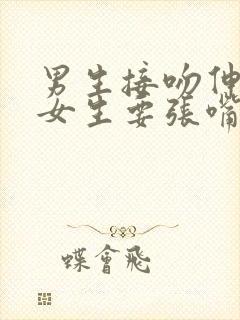 男生接吻伸
女生要張嘴
蝶會飛